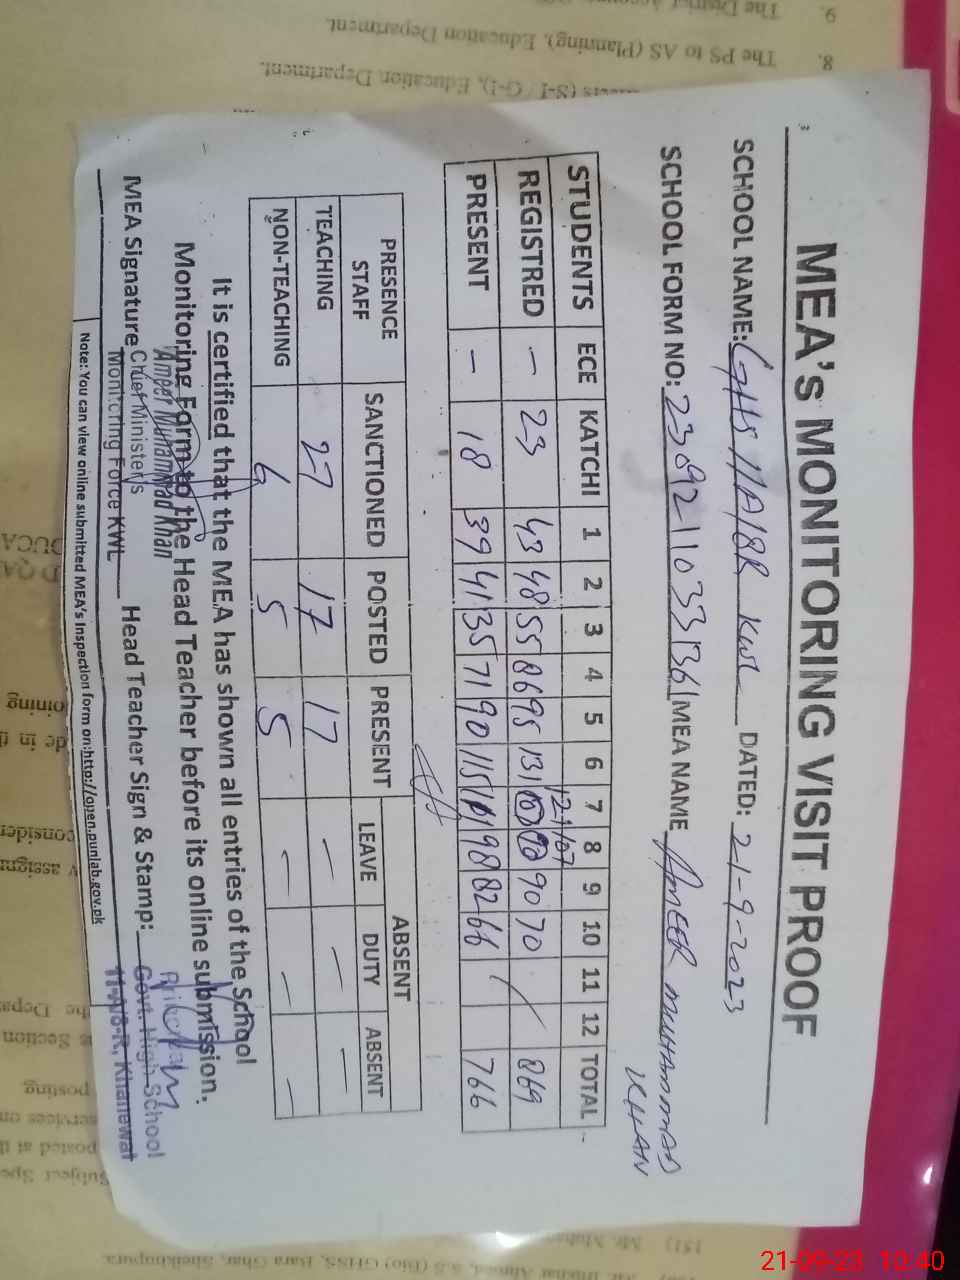 MEA's MONITORING VISIT PROOF
SCHOOL NAME: GHS 11A/8R KWL DATED: 21-9-2023
SCHOOL FORM NO: MEA NAME AMEER MUHAMMAD KHAN
STUDENTS ECE KATCHI 1 2 3 4 5 6 7 8 9 10 11 12 TOTAL
121 107
REGISTRED - 23 43 48 55 86 95 131 90 70 / 869
PRESENT - 18 39 41 35 71 90 115 111 98 82 66 / 766
PRESENCE STAFF SANCTIONED POSTED PRESENT ABSENT
LEAVE DUTY ABSENT
TEACHING 27 17 17 - - -
NON-TEACHING 6 5 5 - - -
It is certified that the MEA has shown all entries of the School
Monitoring Form to the Head Teacher before its online submission.
Ameer Muhammad Khan
MEA Signature Head Teacher Sign & Stamp:
Chief Minister's
Monitoring Force KWL
Govt. High School
11-A/8-R, Khanewal
Note: You can view online submitted MEA's Inspection form on:http://open.punlab.gov.pk
9. The District
8. The PS to AS (Planning), Education Department.
(S-I / O-I), Education Department.
joining
de in
consider
assign
the Depa
Section
posting
services on
posted at th
Subject Spe
151) Mr.
S.S (Bio) GHSS, Bara Ghar, Sheikhupura.
21-09-23 10:40